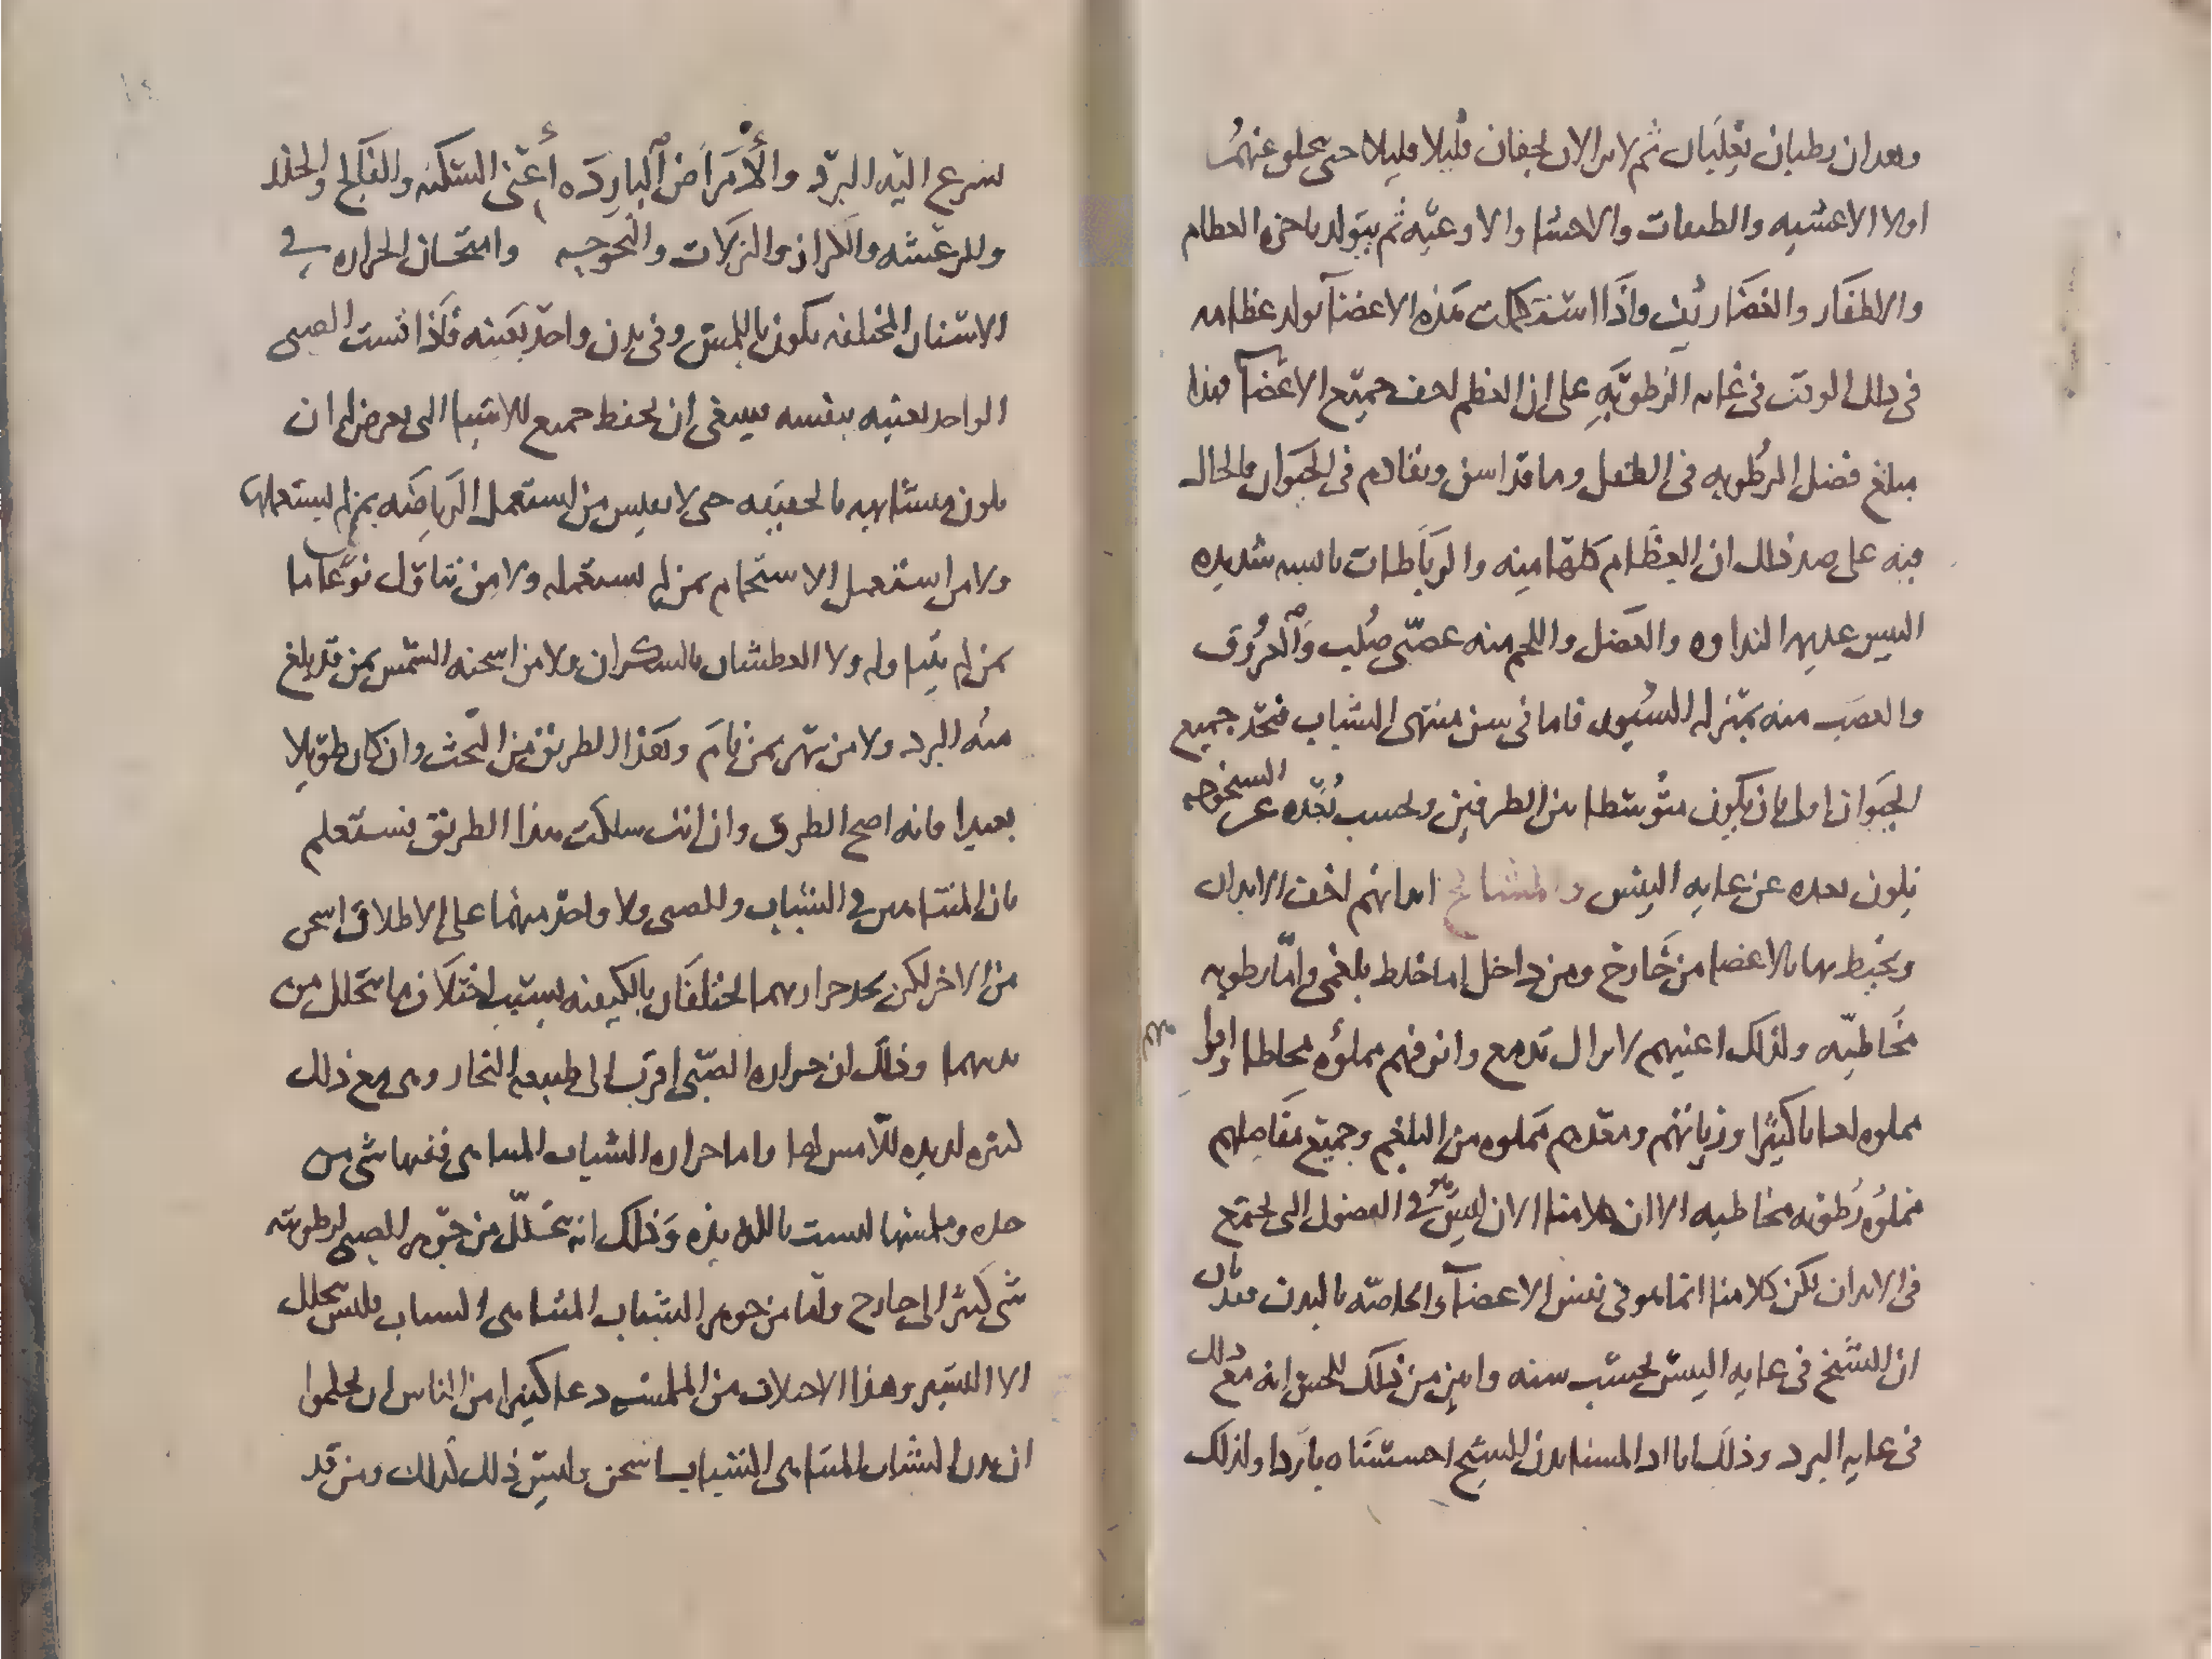 وبعد ان رطبان ثم لا يزالان يجفان قليلا قليلا حتى عنهما
اولا الاغشيه والطبقات والاحشا والاوعيه ثم يتولد باخره العظام
والاظفار والغضاريف واذا استكملت هذه الاعضآ تولد عظامه
فى ذلك الوقت فى غايه الرطوبه على ان العظم اجف جميع الاعضآ فهذا
مبلغ فضل الرطوبه فى الطفل وما قد اسن وتقادم فى الحيوان فالحال
فيه على ضد ذلك ان العظام كلها منه والرباطات يابسه شديده
اليبس عديمه النداوه والعضل واللحم منه عصبى صلب والعروق
والعصب منه بمنزله السيور فاما فى سن منتهى الشباب فتجد جميع
الحيوان اولى بان يكون متوسطا بين الطرفين وبحسب بعده عن الشيخوخه
يكون بعده عن غايه اليبس والمشائخ ابدانهم اجف الابدان
ويحيط بها بالاعضا من خارج ومن داخل اما خلط بلغمى واما رطوبه
مخاطيه ولذلك اعينهم لا تزال تدمع وانوفهم مملؤه مخاطا
مملوه لعابا كثيرا ورياتهم ومعدهم مملوه من البلغم وجميع مفاصلهم
مملؤه رطوبه مخاطيه الا ان كلامنا الان ليس هو فى الفضول التى تجتمع
فى الابدان لكن كلامنا انما هو فى نفس الاعضآ الخاصه بالبدن فقد بان
ان الشيخ فى غايه اليبس بحسب سنه وابين من ذلك للحس انه مع ذلك
فى غايه البرد وذلك انا اذا لمسنا بدن الشيخ احسسناه باردا ولذلك
يسرع اليه البرد والأمراض الباردة أعنى السكته والفالج والخدر
والرعشه والكزاز والنزلات والبحوحه وامتحان الحراره فى
الاسنان المختلفه يكون باللمس وفى بدن واحد بعينه فاذا لمست الصبى
الواحد بعينه بنفسه فينبغى ان تحفظ جميع الاشيا التى يعرض لها ان
يكون متشابهه بالحقيقه حتى لا تقيس من استعمل الرياضه بمن لم يستعملها
ولا من استعمل الاستحمام بمن لم يستعمله ولا من تناول نوعا ما
بمن لم يتناوله ولا العطشان بالسكران ولا من اسخنه الشمس بمن قد بلغ
منه البرد ولا من سهر بمن نام وهذا الطريق من البحث وان كان طويلا
بعيدا فانه اصح الطرق وان انت سلكت هذا الطريق فستعلم
بان المتناهين فى الشباب والصبى ولا واحد منهما على الاطلاق اسخن
من الاخر لكن تجد حرارتهما تختلفان بالكيفيه بسبب اختلاف ما يتحلل من
بدنهما وذلك ان حراره الصبى اقرب الى طبيعه البخار وهى مع ذلك
كثيره لذيذه للامس لها واما حراره الشباب المتناهى ففيها شى من
حده وملمسها ليست باللذيذه وذلك انه يتحلل من جوهر الصبى لرطوبته
شى كثير الى خارج واما من جوهر الشباب المتناهى الشباب فليس يتحلل
الا اليسير وهذا الاختلاف من الملمس دعا كثيرا من الناس ان يحكموا
ان بدن الشباب المتناهى الشباب اسخن وليس ذلك كذلك ومن قد